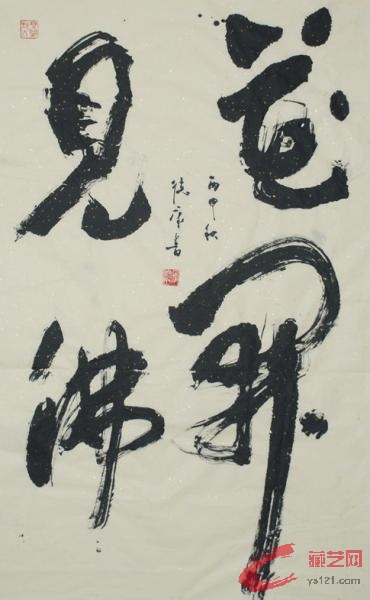 花開
見佛
丙申秋
書
藏艺网
ys121.com